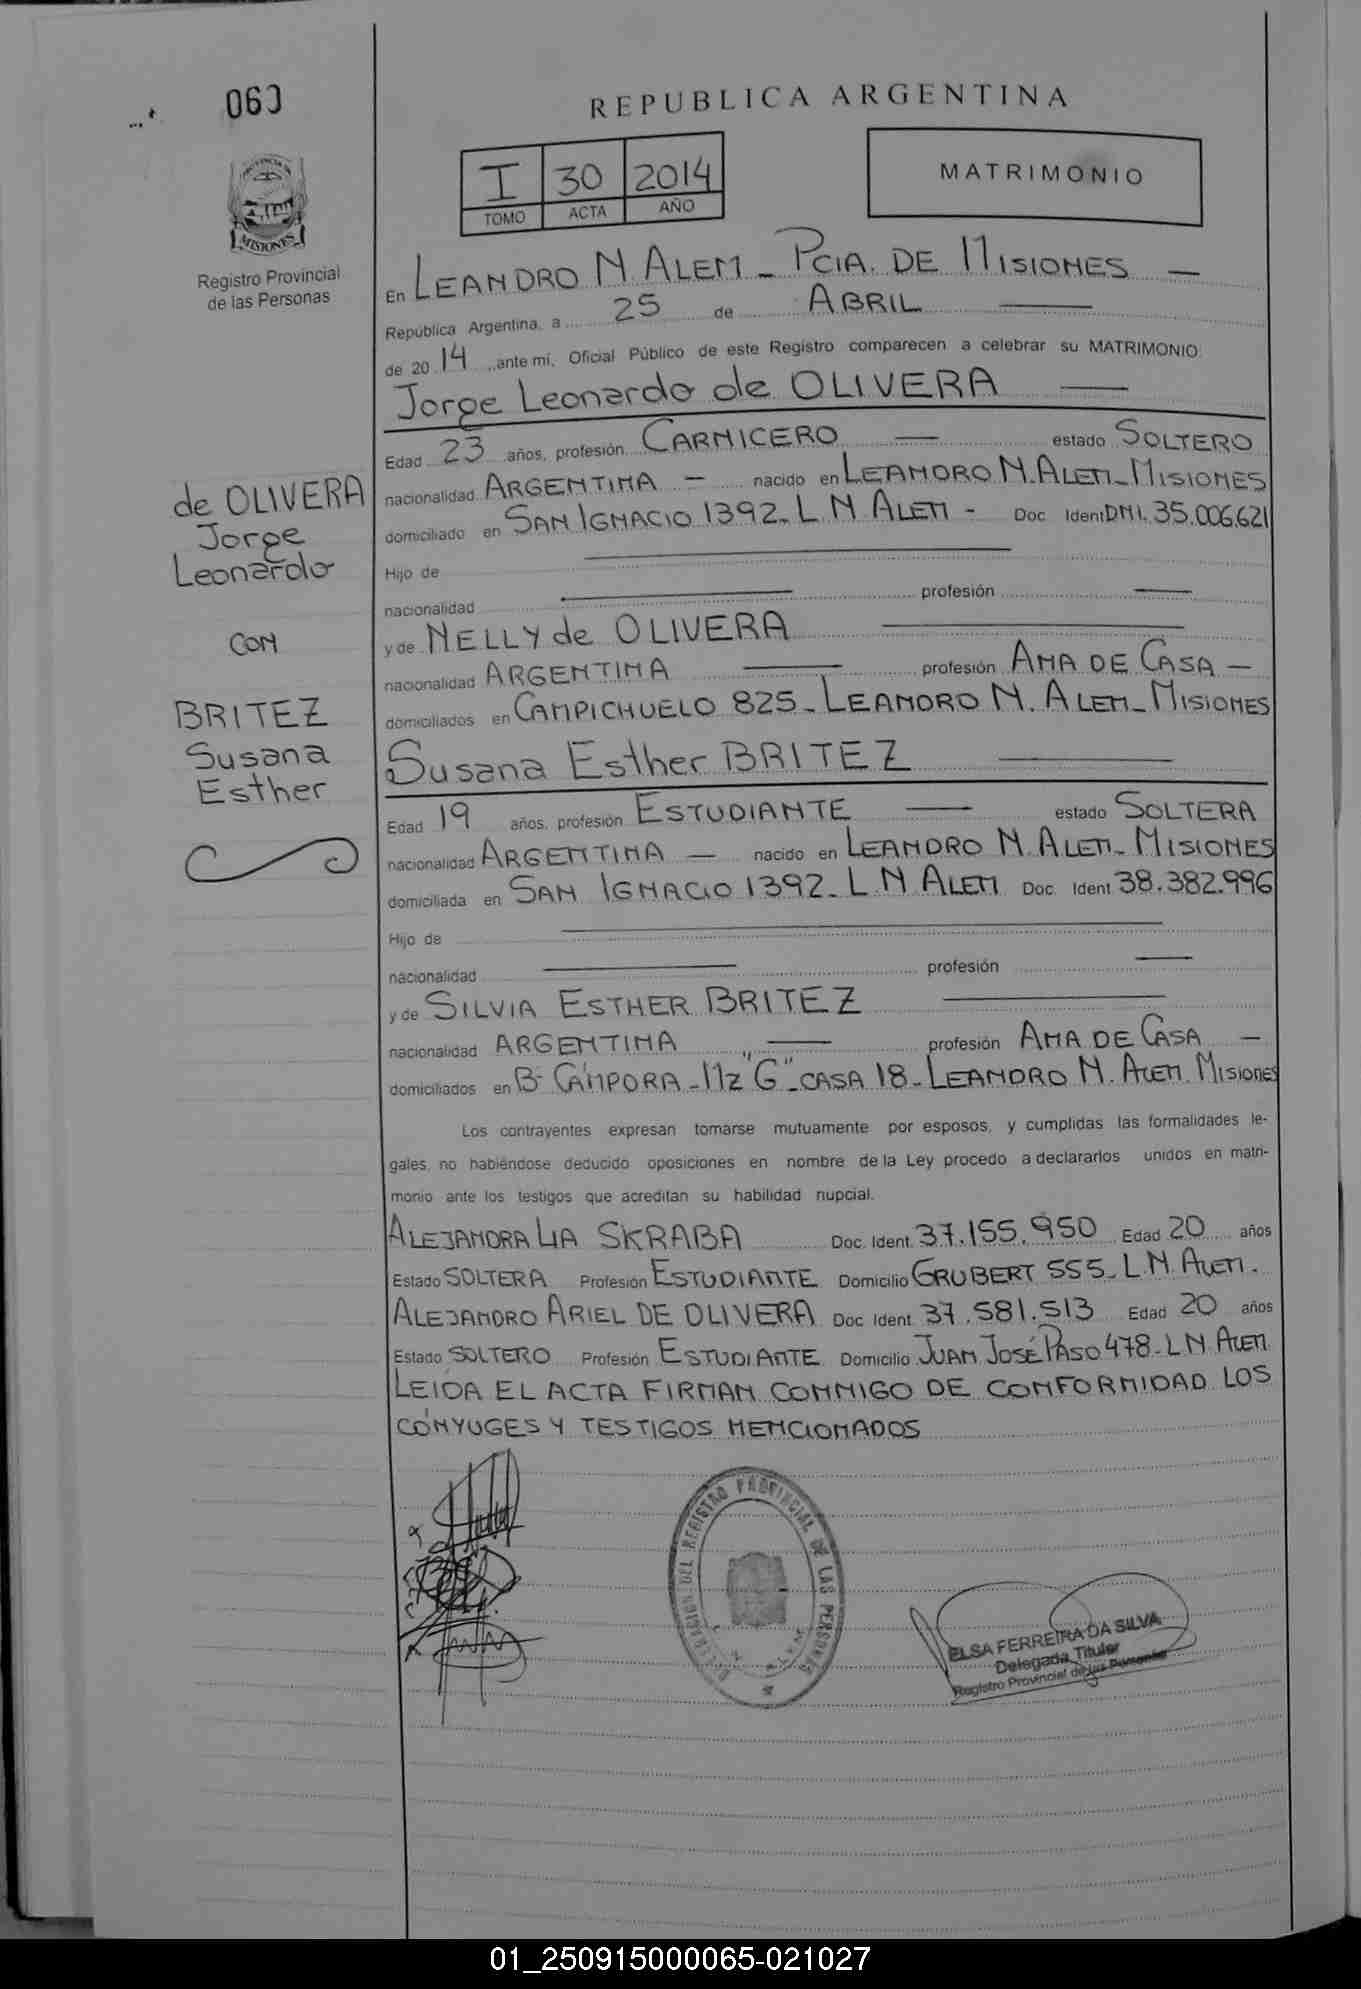 060
REPUBLICA ARGENTINA
I 30 2014
TOMO ACTA AÑO
MATRIMONIO
MISIONES
Registro Provincial
de las Personas
En LEANDRO N. ALEM - PCIA. DE MISIONES —
República Argentina, a 25 de ABRIL —
de 2014, ante mí, Oficial Público de este Registro comparecen a celebrar su MATRIMONIO:
Jorge Leonardo de OLIVERA —
Edad 23 años, profesión CARNICERO — estado SOLTERO
nacionalidad ARGENTINA — nacido en LEANDRO N. ALEM - MISIONES
domiciliado en SAN IGNACIO 1392 - L N ALEM - Doc Ident DNI. 35.006.621
Hijo de —
nacionalidad — profesión —
y de NELLY de OLIVERA —
nacionalidad ARGENTINA — profesión AMA DE CASA —
domiciliados en CAMPICHUELO 825 - LEANDRO N. ALEM - MISIONES
de OLIVERA
Jorge
Leonardo
CON
BRITEZ
Susana
Esther
Susana Esther BRITEZ —
Edad 19 años, profesión ESTUDIANTE — estado SOLTERA
nacionalidad ARGENTINA — nacido en LEANDRO N. ALEM - MISIONES
domiciliada en SAN IGNACIO 1392 - L N ALEM Doc. Ident. 38.382.996
Hijo de —
nacionalidad — profesión —
y de SILVIA ESTHER BRITEZ —
nacionalidad ARGENTINA — profesión AMA DE CASA —
domiciliados en B- CÁMPORA - MZ "G" - CASA 18 - LEANDRO N. ALEM. MISIONES
Los contrayentes expresan tomarse mutuamente por esposos, y cumplidas las formalidades le-
gales, no habiéndose deducido oposiciones en nombre de la Ley procedo a declararlos unidos en matri-
monio ante los testigos que acreditan su habilidad nupcial.
ALEJANDRA LIA SKRABA Doc. Ident. 37.155.950 Edad 20 años
Estado SOLTERA Profesión ESTUDIANTE Domicilio GRUBERT 555 - L.N. ALEM.
ALEJANDRO ARIEL DE OLIVERA Doc. Ident. 37.581.513 Edad 20 años
Estado SOLTERO Profesión ESTUDIANTE Domicilio JUAN JOSÉ PASO 478 - L N ALEM
LEIDA EL ACTA FIRMAN CONMIGO DE CONFORMIDAD LOS
CÓNYUGES Y TESTIGOS MENCIONADOS
DEL REGISTRO PROVINCIAL DE LAS PERSONAS
ELSA FERREIRA DA SILVA
Delegada Titular
Registro Provincial de las Personas
01_250915000065-021027